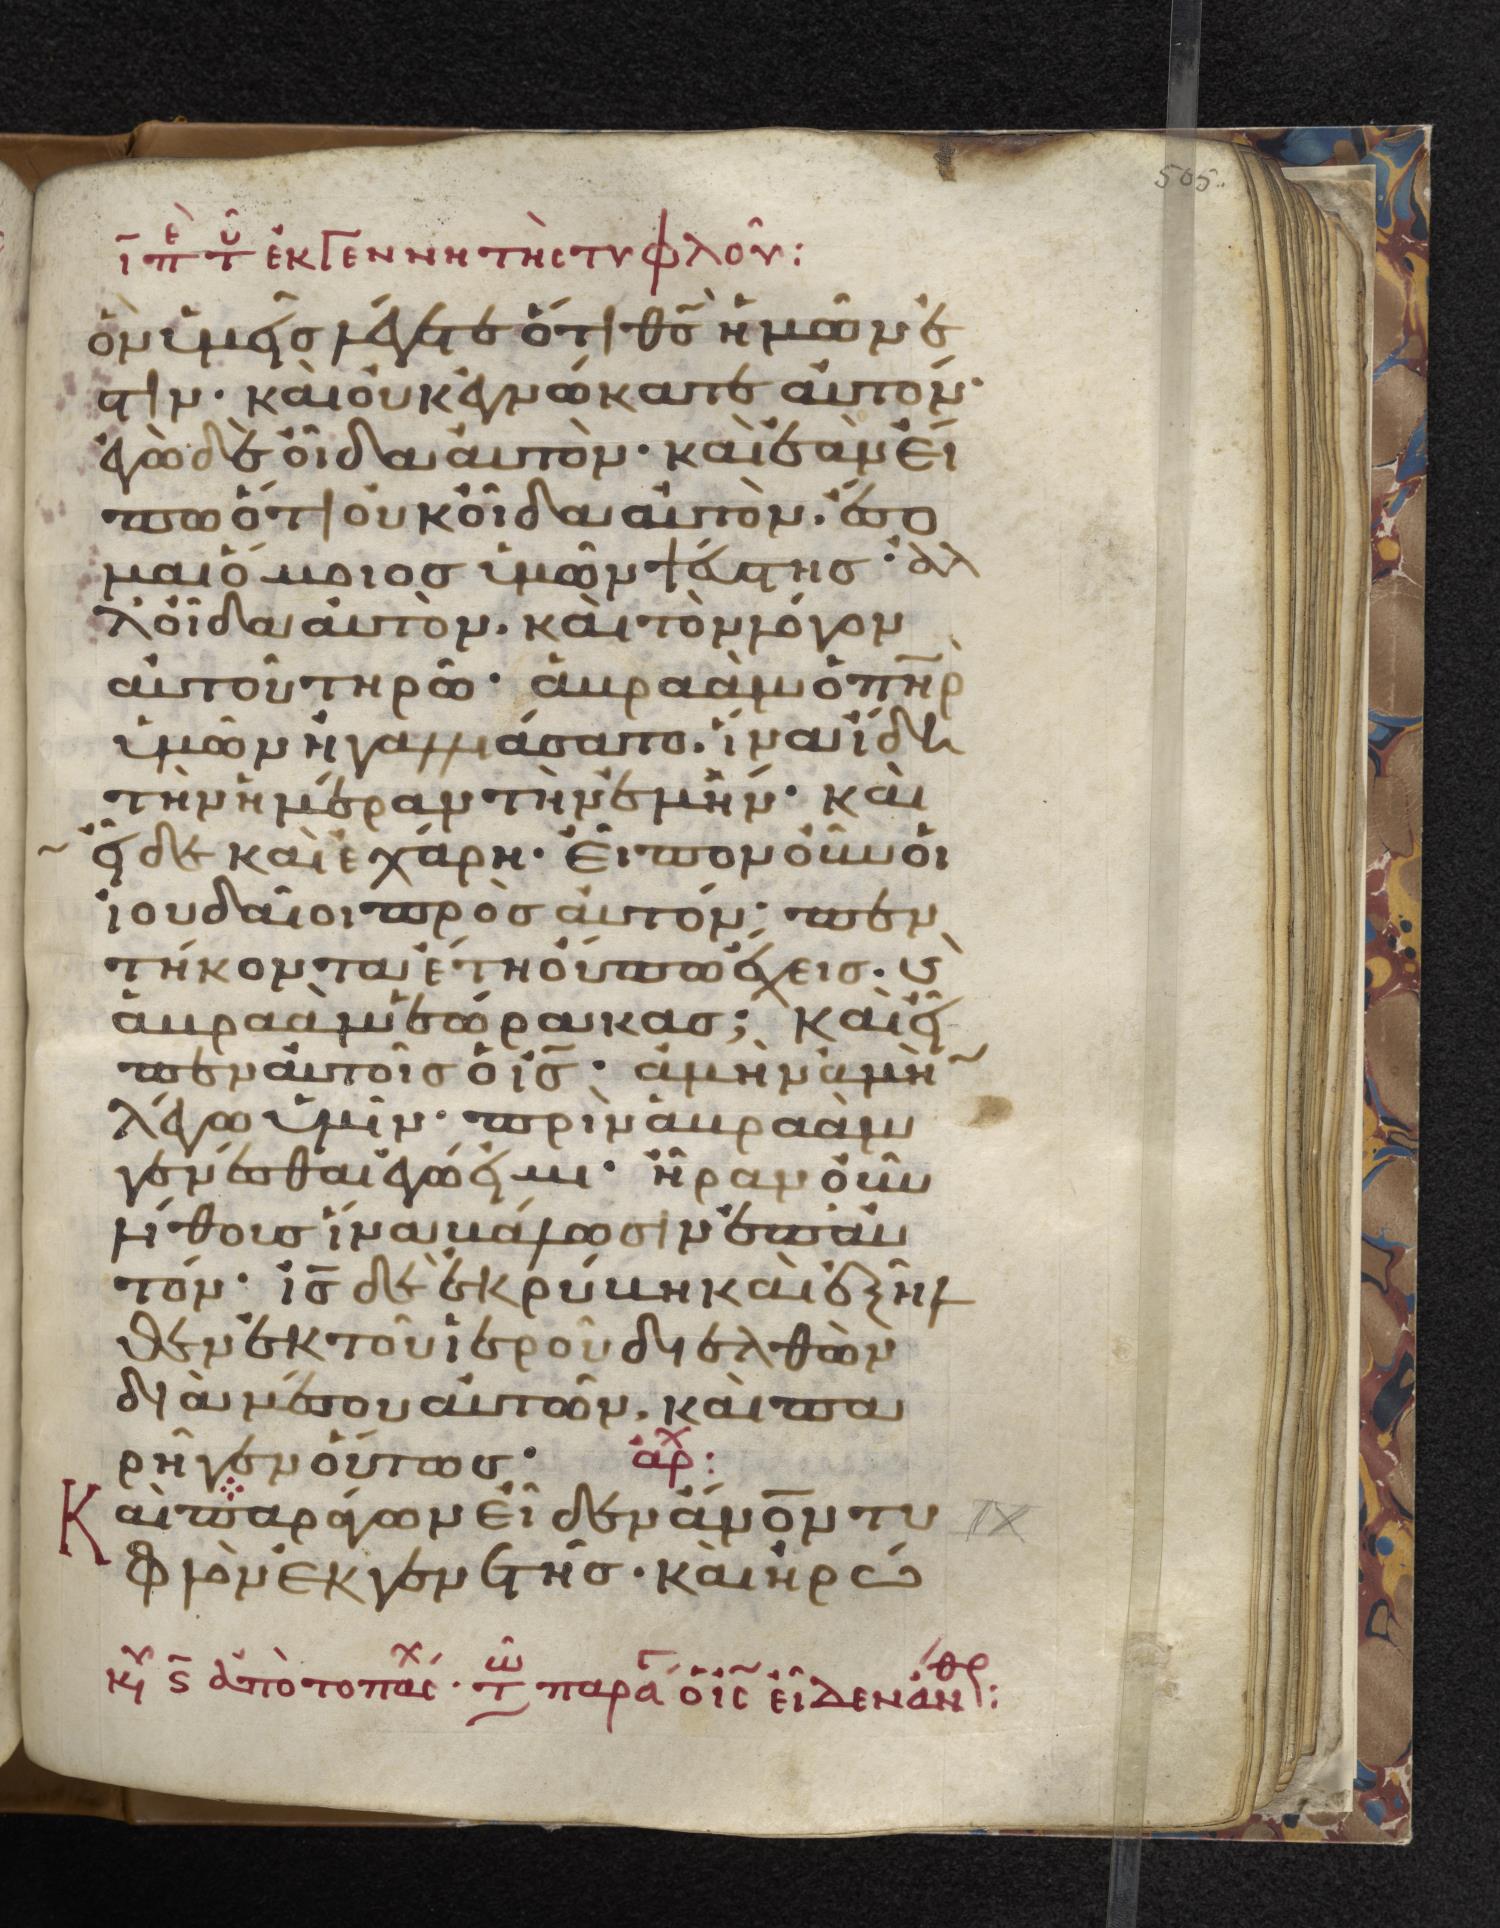 505
ῑ π̅ὲ τ̅ῦ ἐκ γεννητὴς τυφλοῦ:
ὃν ὑμεῖς λέγετε ὅτι θ̅ς̅ ἡμῶν ἐσ
τιν· καὶ οὐκ ἐγνώκατε αὐτόν·
ἐγὼ δὲ οἶδα αὐτὸν· καὶ ἐὰν εἴ
πω ὅτι οὐκ οἶδα αὐτὸν. ἔσο
μαι ὅμοιος ὑμῶν ψεύστης· ἀλ
λ' οἶδα αὐτὸν. καὶ τὸν λόγον
αὐτοῦ τηρῶ· ἁβραὰμ ὁ π̅η̅ρ̅
ὑμῶν ἠγαλλιάσατο. ἵνα ἴδη
τὴν ἡμέραν τὴν ἐμήν· καὶ
εἶδε καὶ ἐχάρη· Εἶπον οὖν οἱ
ἰουδαῖοι πρὸς αὐτόν· πεν
τήκοντα ἔτη οὔπω ἔχεις. καὶ
ἁβραὰμ ἑώρακας; Καὶ εἶ
πεν αὐτοῖς ὁ ι̅ς̅· ἀμὴν ἀμὴ̅
λέγω ὑμῖν· πρὶν ἁβραὰμ
γενέσθαι ἐγώ εἰμι· ἦραν οὖν
λίθους ἵνα βάλωσιν ἐπ' αὐ
τόν· ι̅ς̅ δὲ ἐκρύβη καὶ ἐξῆλ
θεν ἐκ τοῦ ἱεροῦ διελθὼν
διὰ μέσου αὐτῶν. καὶ πα
ρῆγεν οὕτως· ἀρͯ:
Καὶ παράγων εἶδεν ἄν̅ο̅ν̅ τυ
φλὸν ἐκ γενετῆς· καὶ ἠρώ
IX
κυ ϛ̅ ἀπὸ το πάσχ· τ̅ῶ παρά ὁ ι̅ς̅ εἶδεν ἄν̅θρ: